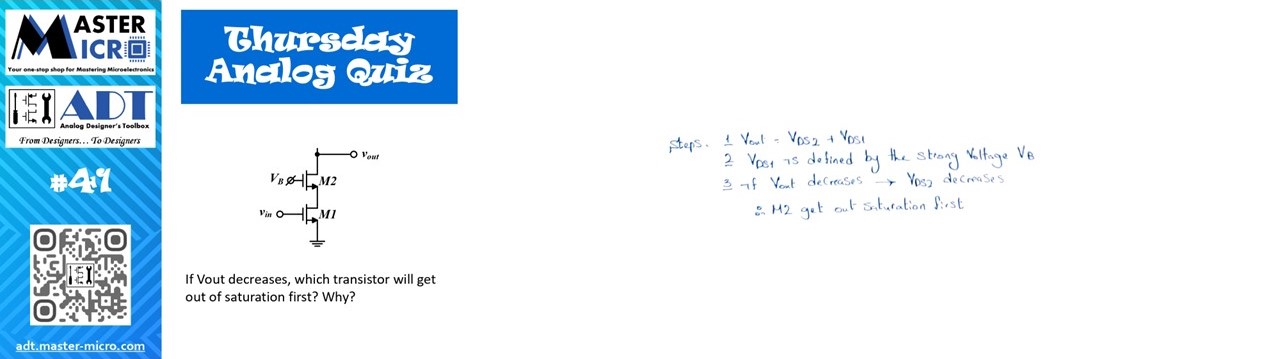 MASTER
MICRO
Your one-stop shop for Mastering Microelectronics
ADT
Analog Designer's Toolbox
From Designers... To Designers
#41
adt.master-micro.com
Thursday
Analog Quiz
vout
VB
M2
vin
M1
If Vout decreases, which transistor will get
out of saturation first? Why?
steps.
1 Vout = VDS2 + VDS1
2 VDS1 is defined by the strong Voltage VB
3 if Vout decreases → VDS2 decreases
∴ M2 get out saturation first